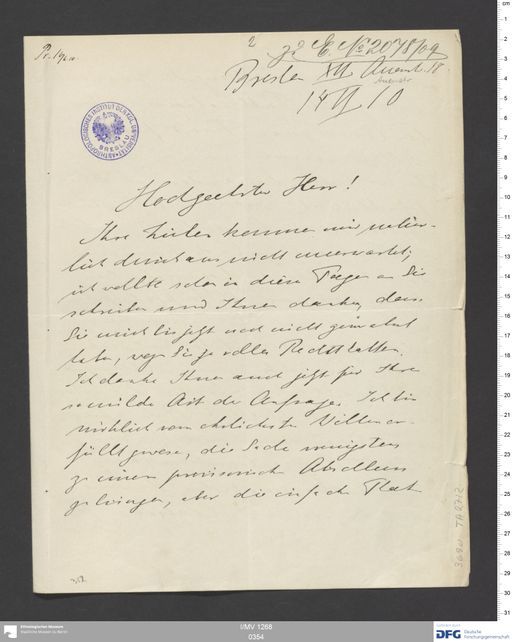 Pr. 1910.
2
zu E. No 2078/09
Breslau XVI Auenstr. 18
Auenstr.
14 VI 10
ANTHROPOLOGISCHES INSTITUT DER KGL. UNIVERSITÄT
BRESLAU
Hochgeehrter Herr!
Ihre Zeilen kommen mir natür-
lich durchaus nicht unerwartet;
ich wollte schon in diesen Tagen an Sie
schreiben und Ihnen danken, dass
Sie mich bis jetzt noch nicht gemahnt
haben, wozu Sie ja volles Recht hatten.
Ich danke Ihnen auch jetzt für Ihre
so milde Art der Anfrage. Ich bin
wirklich vom ehrlichsten Willen er-
füllt gewesen, die Sache wenigstens
zu einem provisorischen Abschluss
zu bringen, aber die einfache That-
Ethnologisches Museum
Staatliche Museen zu Berlin
I/MV 1268
0354
DFG Deutsche
Forschungsgemeinschaft